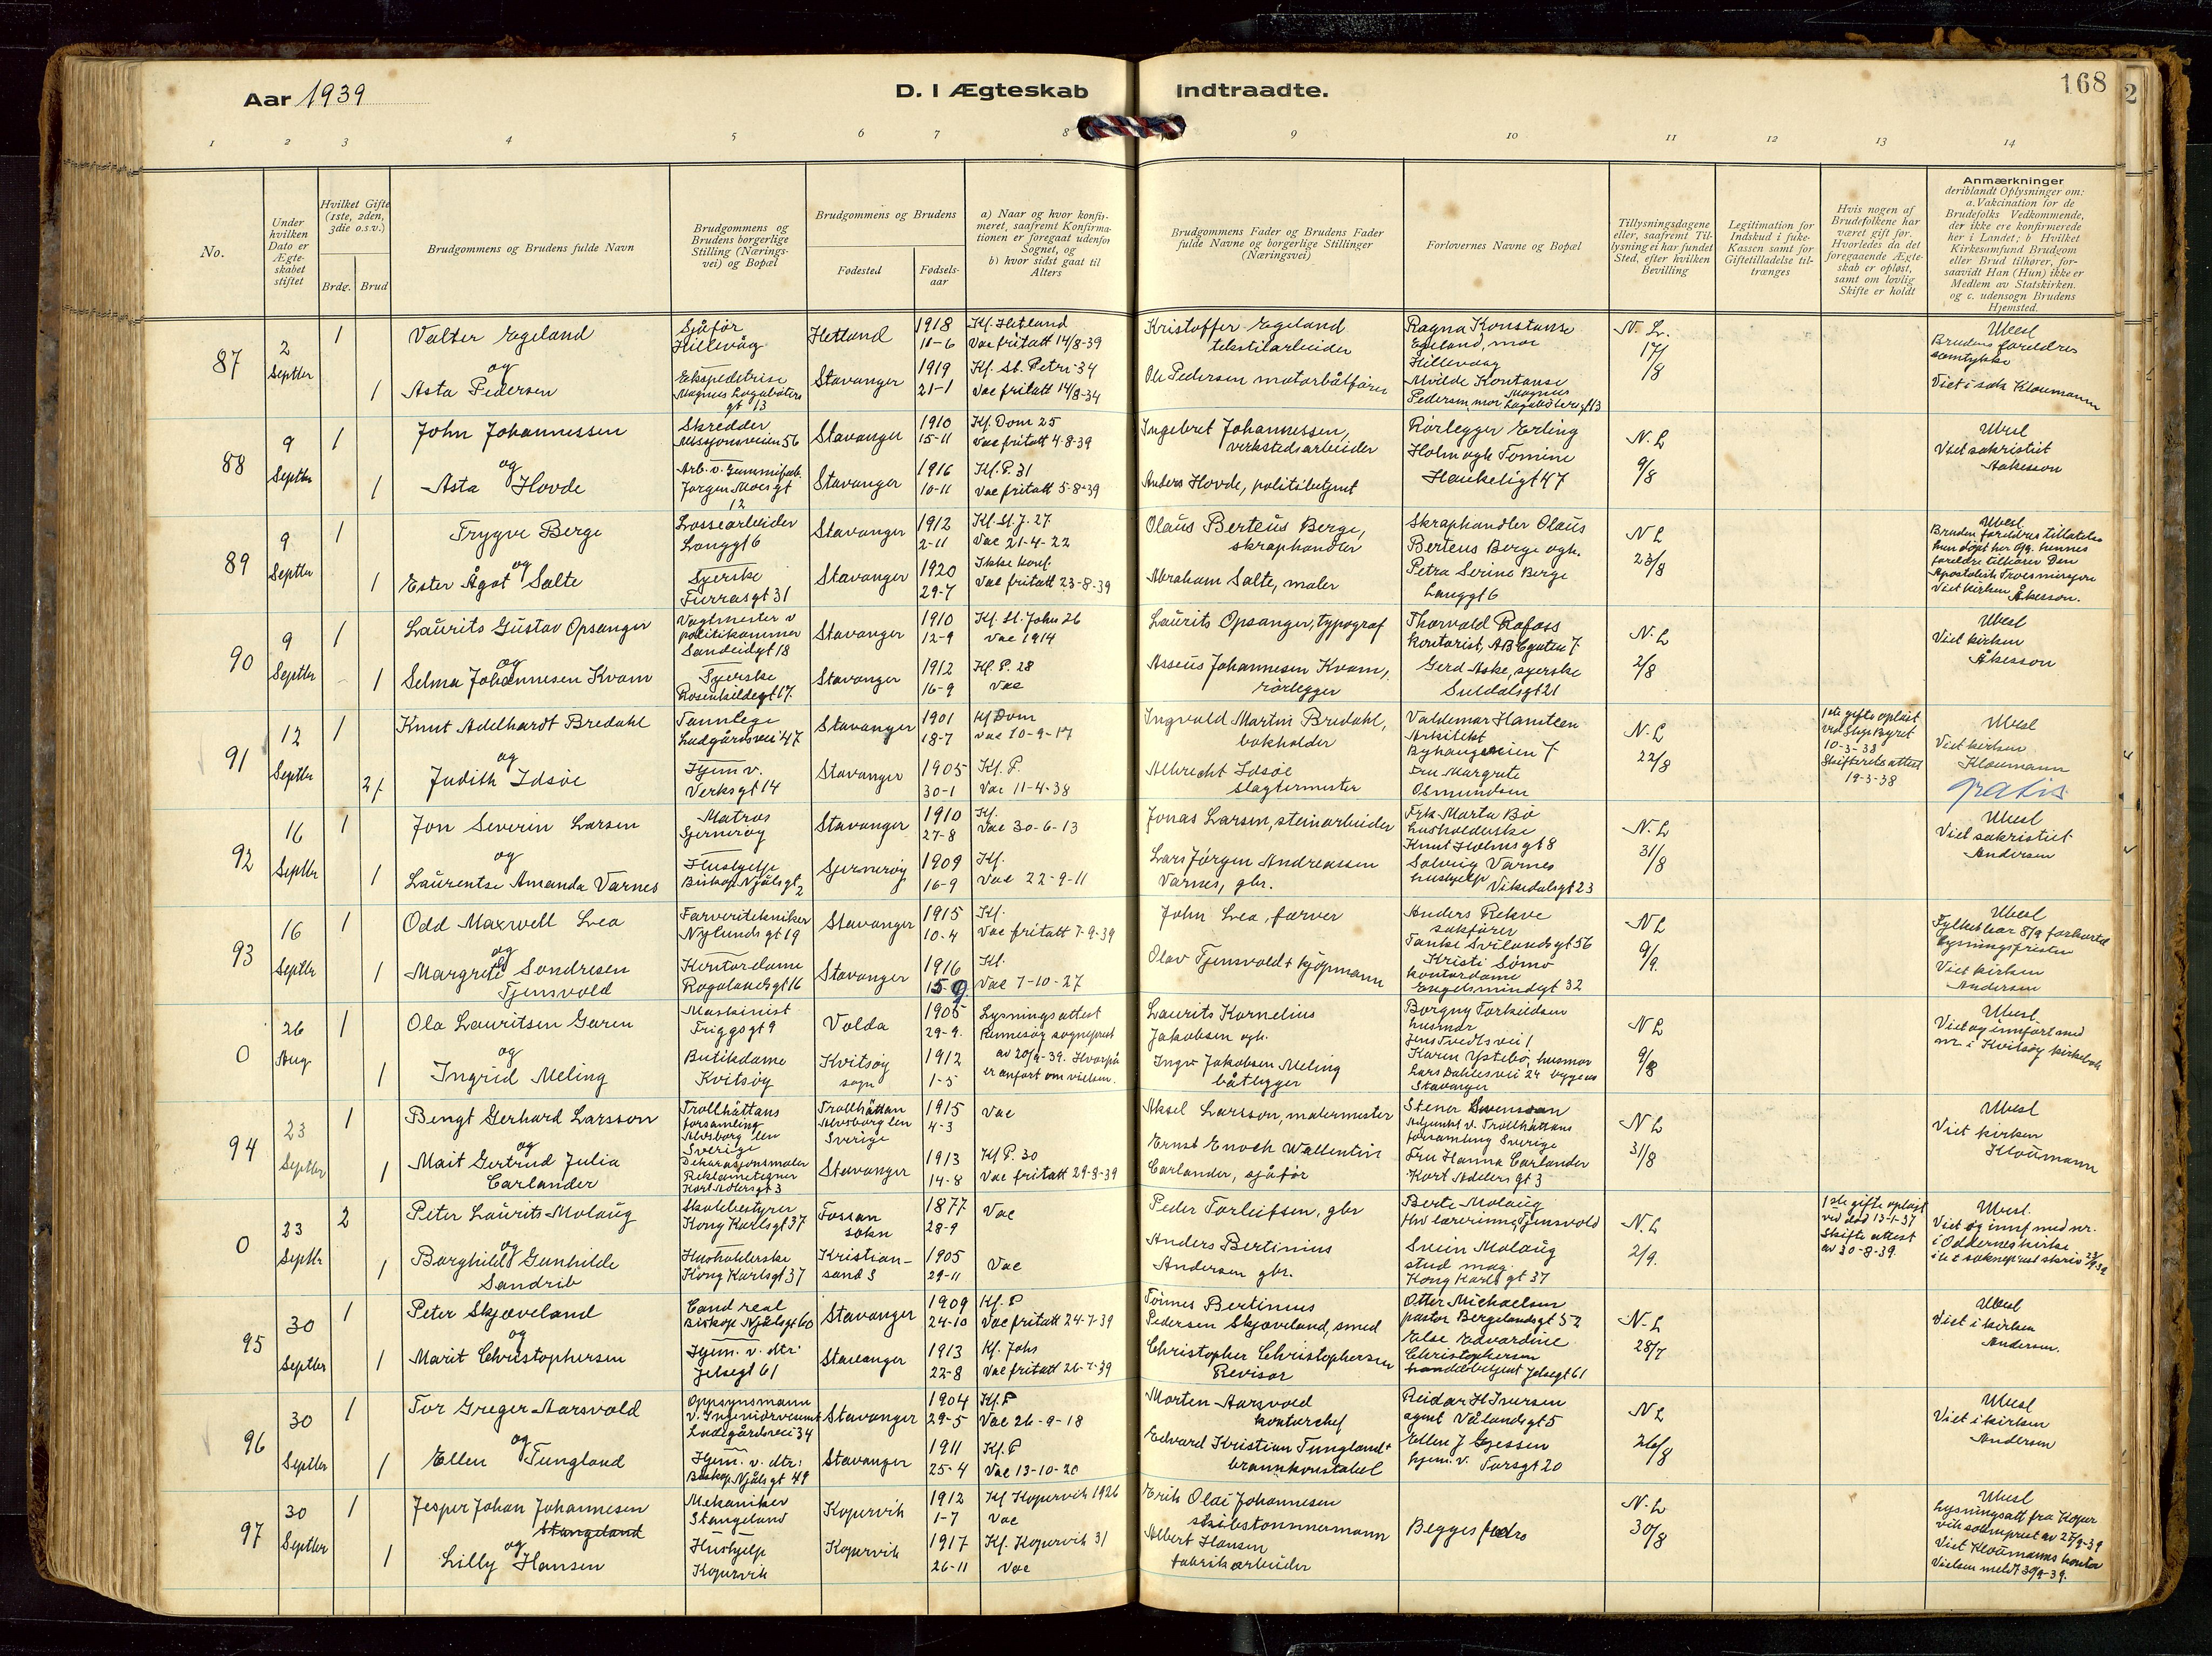 Aar 1939
D. I Ægteskab Indtraadte.
168
1 2 3 4 5 6 7 8 9 10 11 12 13 14
No.
Under hvilken Dato er Ægteskabet stiftet
Hvilket Gifte (1ste, 2den, 3die o.s.v.)
Brdg. Brud
Brudgommens og Brudens fulde Navn
Brudgommens og Brudens borgerlige Stilling (Næringsvei) og Bopæl
Brudgommens og Brudens
Fødested
Fødselsaar
a) Naar og hvor konfirmeret, saafremt Konfirmationen er foregaat udenfor Sognet, og
b) hvor sidst gaat til Alters
Brudgommens Fader og Brudens Fader fulde Navne og borgerlige Stillinger (Næringsvei)
Forlovernes Navne og Bopæl
Tillysningsdagene eller, saafremt Tillysning ei har fundet Sted, efter hvilken Bevilling
Legitimation for Indskud i Enke-Kassen samt for Giftetilladelse tiltrænges
Hvis nogen af Brudefolkene har været gift før. Hvorledes da det foregaaende Ægteskab er opløst, samt om lovlig Skifte er holdt
Anmærkninger
deriblandt Oplysninger om:
a. Vakcination for de Brudefolks Vedkommende, der ikke ere konfirmerede her i Landet; b Hvilket Kirkesomfund Brudgom eller Brud tilhører, forsaavidt Han (Hun) ikke er Medlem av Statskirken. og c. udensogn Brudens Hjemsted.
87
2 Septber
1
Valter Egeland
Sjåfør Hillevåg
Hetland
1918 11-6
Kf. Hetland
Vac fritatt 14/8-39
Kristoffer Egeland
tekstilarbeider
Ragna Konstanse Egeland, mor
Hillevåg
N. L. 17/8
Ubesl
Brudens foreldres samtykke
Viet i sak Kloumann
og
1
Asta Pedersen
Ekspeditrise
Magnus Lagabøters gt 13
Stavanger
1919 21-1
Kf. St. Petri 34
Vac fritatt 14/8-34
Ole Pedersen motorbåtfører
Pedersen, mor
88
9 Septber
1
John Johannessen
Skredder
Misjonsveien 56
Stavanger
1910 15-11
Kf. Dom 25
Vac fritatt 4-8-39
Ingebret Johannessen,
verkstedsarbeider
Rørlegger Erling
Holm ogh Tomine
Haukeligt 47
N. L 9/8
Ubesl
Viet sakristiet
Aakesson
og
1
Asta Hovde
Arb. v. Gummifab.
Jørgen Moesgt 12
Stavanger
1916 10-11
Kf. P. 31
Vac fritatt 5-8-39
Anders Hovde, politibetjent
89
9 Septber
1
Trygve Berge
Lossearbeider
Langgt 6
Stavanger
1912 2-11
Kf. St. J. 27.
Vac 21-4-22
Olaus Berteus Berge,
skraphandler
Skraphandler Olaus
Berteus Berge ogh.
Petra Serine Berge
Langgt 6
N L 23/8
Ubesl
Bruden foreldres tillatelse
hun døpt her Og. hennes
foreldre tilhører Den
Apostolisk Troesmisjon
Viet kirken Åkesson.
og
1
Ester Ågot Salte
Syerske
Furrasgt 31
Stavanger
1920 29-7
Ikke konf.
Vac fritatt 23-8-39
Abraham Salte, maler
90
9 Septber
1
Laurits Gustav Opsanger
Vagtmester v politikammer
Sandeidgt 18
Stavanger
1910 12-9
Kf. St. Johs 26
Vac 1914
Laurits Opsanger, typograf
Thorvald Rafoss
kontorist, AB C gaten 7
Gerd Aske, syerske
Suldalsgt 21
N. L 2/8
Ubesl
Viet kirken
Åkesson
og
1
Selma Johannesen Kvam
Syerske
Rosenkildegt 17.
Stavanger
1912 16-9
Kf. P. 28
Vac
Asseus Johannesen Kvam,
rørlegger
91
12 Septber
1
Knut Adelhardt Bredahl
Tannlege
Ladgårdsvei 47
Stavanger
1901 18-7
Kf Dom
Vac 10-9-17
Ingvald Martin Bredahl,
bokholder
Valdemar Hansteen
Arkitekt
Byhaugveien 7
Fru Margrete
Osmundsen
N. L 22/8
1ste gifte opløst
ved Stvgr Byret
10-3-38
Skifteretts attest
19-3-38
Ubesl
Viet kirken
Kloumann
gratis
og
2 f.
Judith Idsøe
Hjem v.
Verksgt 14
Stavanger
1905 30-1
Kf. P.
Vac 11-4-38
Albrecht Idsøe
slagtermester
92
16 Septber
1
Jon Severin Larsen
Matros
Sjernerøy
Stavanger
1910 27-8
Kf.
Vac 30-6-13
Jonas Larsen, steinarbeider
Frk Marta Bø
husholderske
Knut Holmsgt 8
Solveig Varnes
hushjelp Vikedalsgt 23
N. L 31/8
Ubesl
Viet sakristiet
Andersen
og
1
Laurentse Amanda Varnes
Hushjelp
Biskop Njålsgt 2
Sjernerøy
1909 16-9
Kf.
Vac 22-9-11
Lars Jørgen Andreassen
Varnes, gbr.
93
16 Septbr
1
Odd Maxwell Lea
Farveritekniker
Nylundsgt 19
Stavanger
1915 10-4
Kf.
Vac fritatt 7-9-39
John Lea, farver
Anders Rekve
sakfører
Tanke Svilandsgt 56
Kristi Sømo
kontordame
Engelsmindegt 32
N L 9/9.
Ubesl
Fylket har 8/9 forkortet
lysningsfristen
Viet kirken
Andersen
og
1
Margrete Sondresen
Tjensvold
Kontordame
Rogalandsgt 16
Stavanger
1916 15-9
Kf.
Vac 7-10-27
Olav Tjensvold + kjøpmann
0
26 Aug
1
Ola Lauritsen Garen
Maskinist
Friggsgt 9
Volda
1905 29-9.
Lysningsattest
Rennesøy sogneprest
av 20/9-39. Hvorpå
er anført om vielsen.
Laurits Kornelius
Jakobsen ogh.
Borgny Torkildsen
husmor
Jens Tvedtsvei 1
Karen Ystebø, husmor
Lars Dahlesvei 24
Stavanger
N L 9/8
Ubesl
Viet og innført med
nr. i Kvitsøy kirkebok
og
1
Ingrid Meling
Butikdame
Kvitsøy
Kvitsøy sogn
1912 1-5
Ingv Jakobsen Meling
båtbygger
94
23 Septber
1
Bengt Gerhard Larsson
Trollhättans
forsamling
Alvsborg len
Sverige
Dekorasjonsmaler
Trollhättan
Alvsborg len
Sverige
1915 4-3
Vac
Aksel Larsson, malermester
Stener Swensson
Adjunkt v. Trollhättans
forsamling Sverige
Fru Hanna Carlander
Kort Adelersgt 3
N L 31/8
Ubesl
Viet kirken
Kloumann
og
1
Mait Gertrud Julia
Carlander
Reklametegner
Kort Adlersgt 3
Stavanger
1913 14-8
Kf P. 30
Vac fritatt 29-8-39
Ernst Enoch Wallentin
Carlander, sjåfør
0
23 Septbr
2
Peter Laurits Molaug
Skolebestyrer
Kong Karlsgt 37
Fossan sokn
1877 28-9
Vac
Peder Torleifsen, gbr
Berte Molaug
fhv lærerinne, Tjensvold
Svein Molaug
stud mag.
Kong Karlsgt 37
N. L 2/9.
1ste gifte opløst
ved død 13-1-37
Skifte attest
av 30-8-39.
Ubesl.
Viet og innf med nr.
i Oddernes kirke
og
1
Borghild Gunhilde
Sandrib
Husholderske
Kong Karlsgt 37
Kristiansand S
1905 29-11
Vac
Anders Bertinius
Andersen gbr.
95
30 Septber
1
Peter Skjæveland
Cand real
Biskop Njålsgt 60
Stavanger
1909 24-10
Kf. P
Vac fritatt 24-7-39
Tønnes Bertinius
Pedersen Skjæveland, smed
Otter Michaelsen
pastor Bergelandsgt 52
Else Edvardine
Christophersen
handelsbetjent Jelsegt 61
N-L 28/7
Ubesl
Viet i kirken
Andersen.
og
1
Marit Christophersen
Hjem. v. dtr.
Jelsegt 61
Stavanger
1913 22-8
Kf. Johs
Vac fritatt 26-7-39
Christopher Christophersen
Revisor
96
30 Septber
1
Tor Greger Aarsvold
Oppsynsmann
v. Ingeniørvesenet
Ladegårdsvei 34
Stavanger
1904 29-5
Kf. P
Vac 26-9-18
Morten Aarsvold
kontorchef
Reidar H Iversen
agent Vålandsgt 5
Ellen J Gjessen
hjem. v. Torsgt 20
N L 26/8
Ubesl
Viet i kirken
Andersen
og
1
Ellen Tungland
Hjem. v. dtr.
Biskop Njålsgt 49
Stavanger
1911 25-4
Kf. P
Vac 13-10-20
Edvard Kristian Tungland +
brannkonstabel
97
30 Septber
1
Jesper Johan Johannesen
Stangeland
Mekaniker
Stangeland
Kopervik
1912 1-7
Kf Kopervik 1926
Vac
Erik Olai Johannesen
skibstømmermann
Begges fedre
N-L 30/8
Ubesl
Lysningsatt fra Koper
vik sokneprest av 27/9-39
Viet Kloumanns kontor
Vielsen meldt 30/9-39.
og
1
Lilly Hansen
Hushjelp
Kopervik
Kopervik
1917 26-11
Kf. Kopervik 31
Vac
Albert Hansen
fabrikarbeider